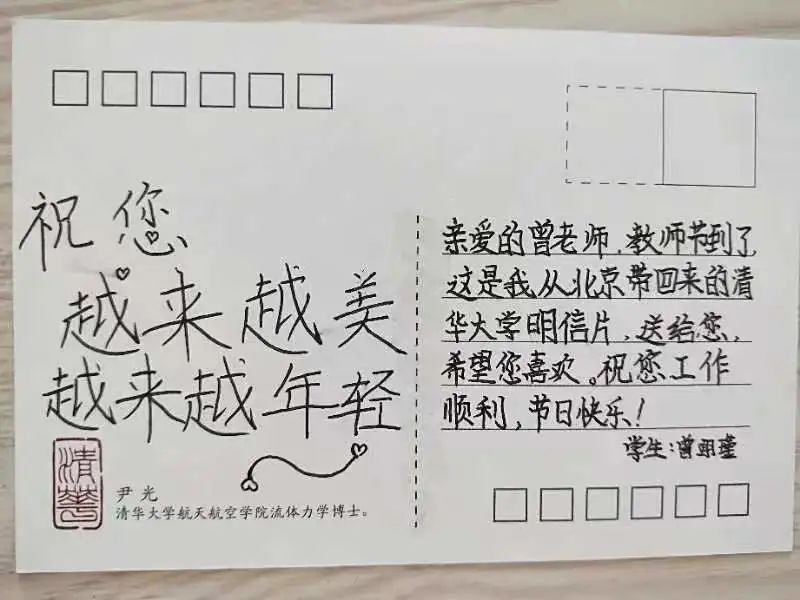 祝您
越来越美
越来越年轻
清华
尹光
清华大学航天航空学院流体力学博士。
亲爱的曾老师，教师节到了
这是我从北京带回来的清
华大学明信片，送给您，
希望您喜欢。祝您工作
顺利，节日快乐！
学生：曾玥瑾